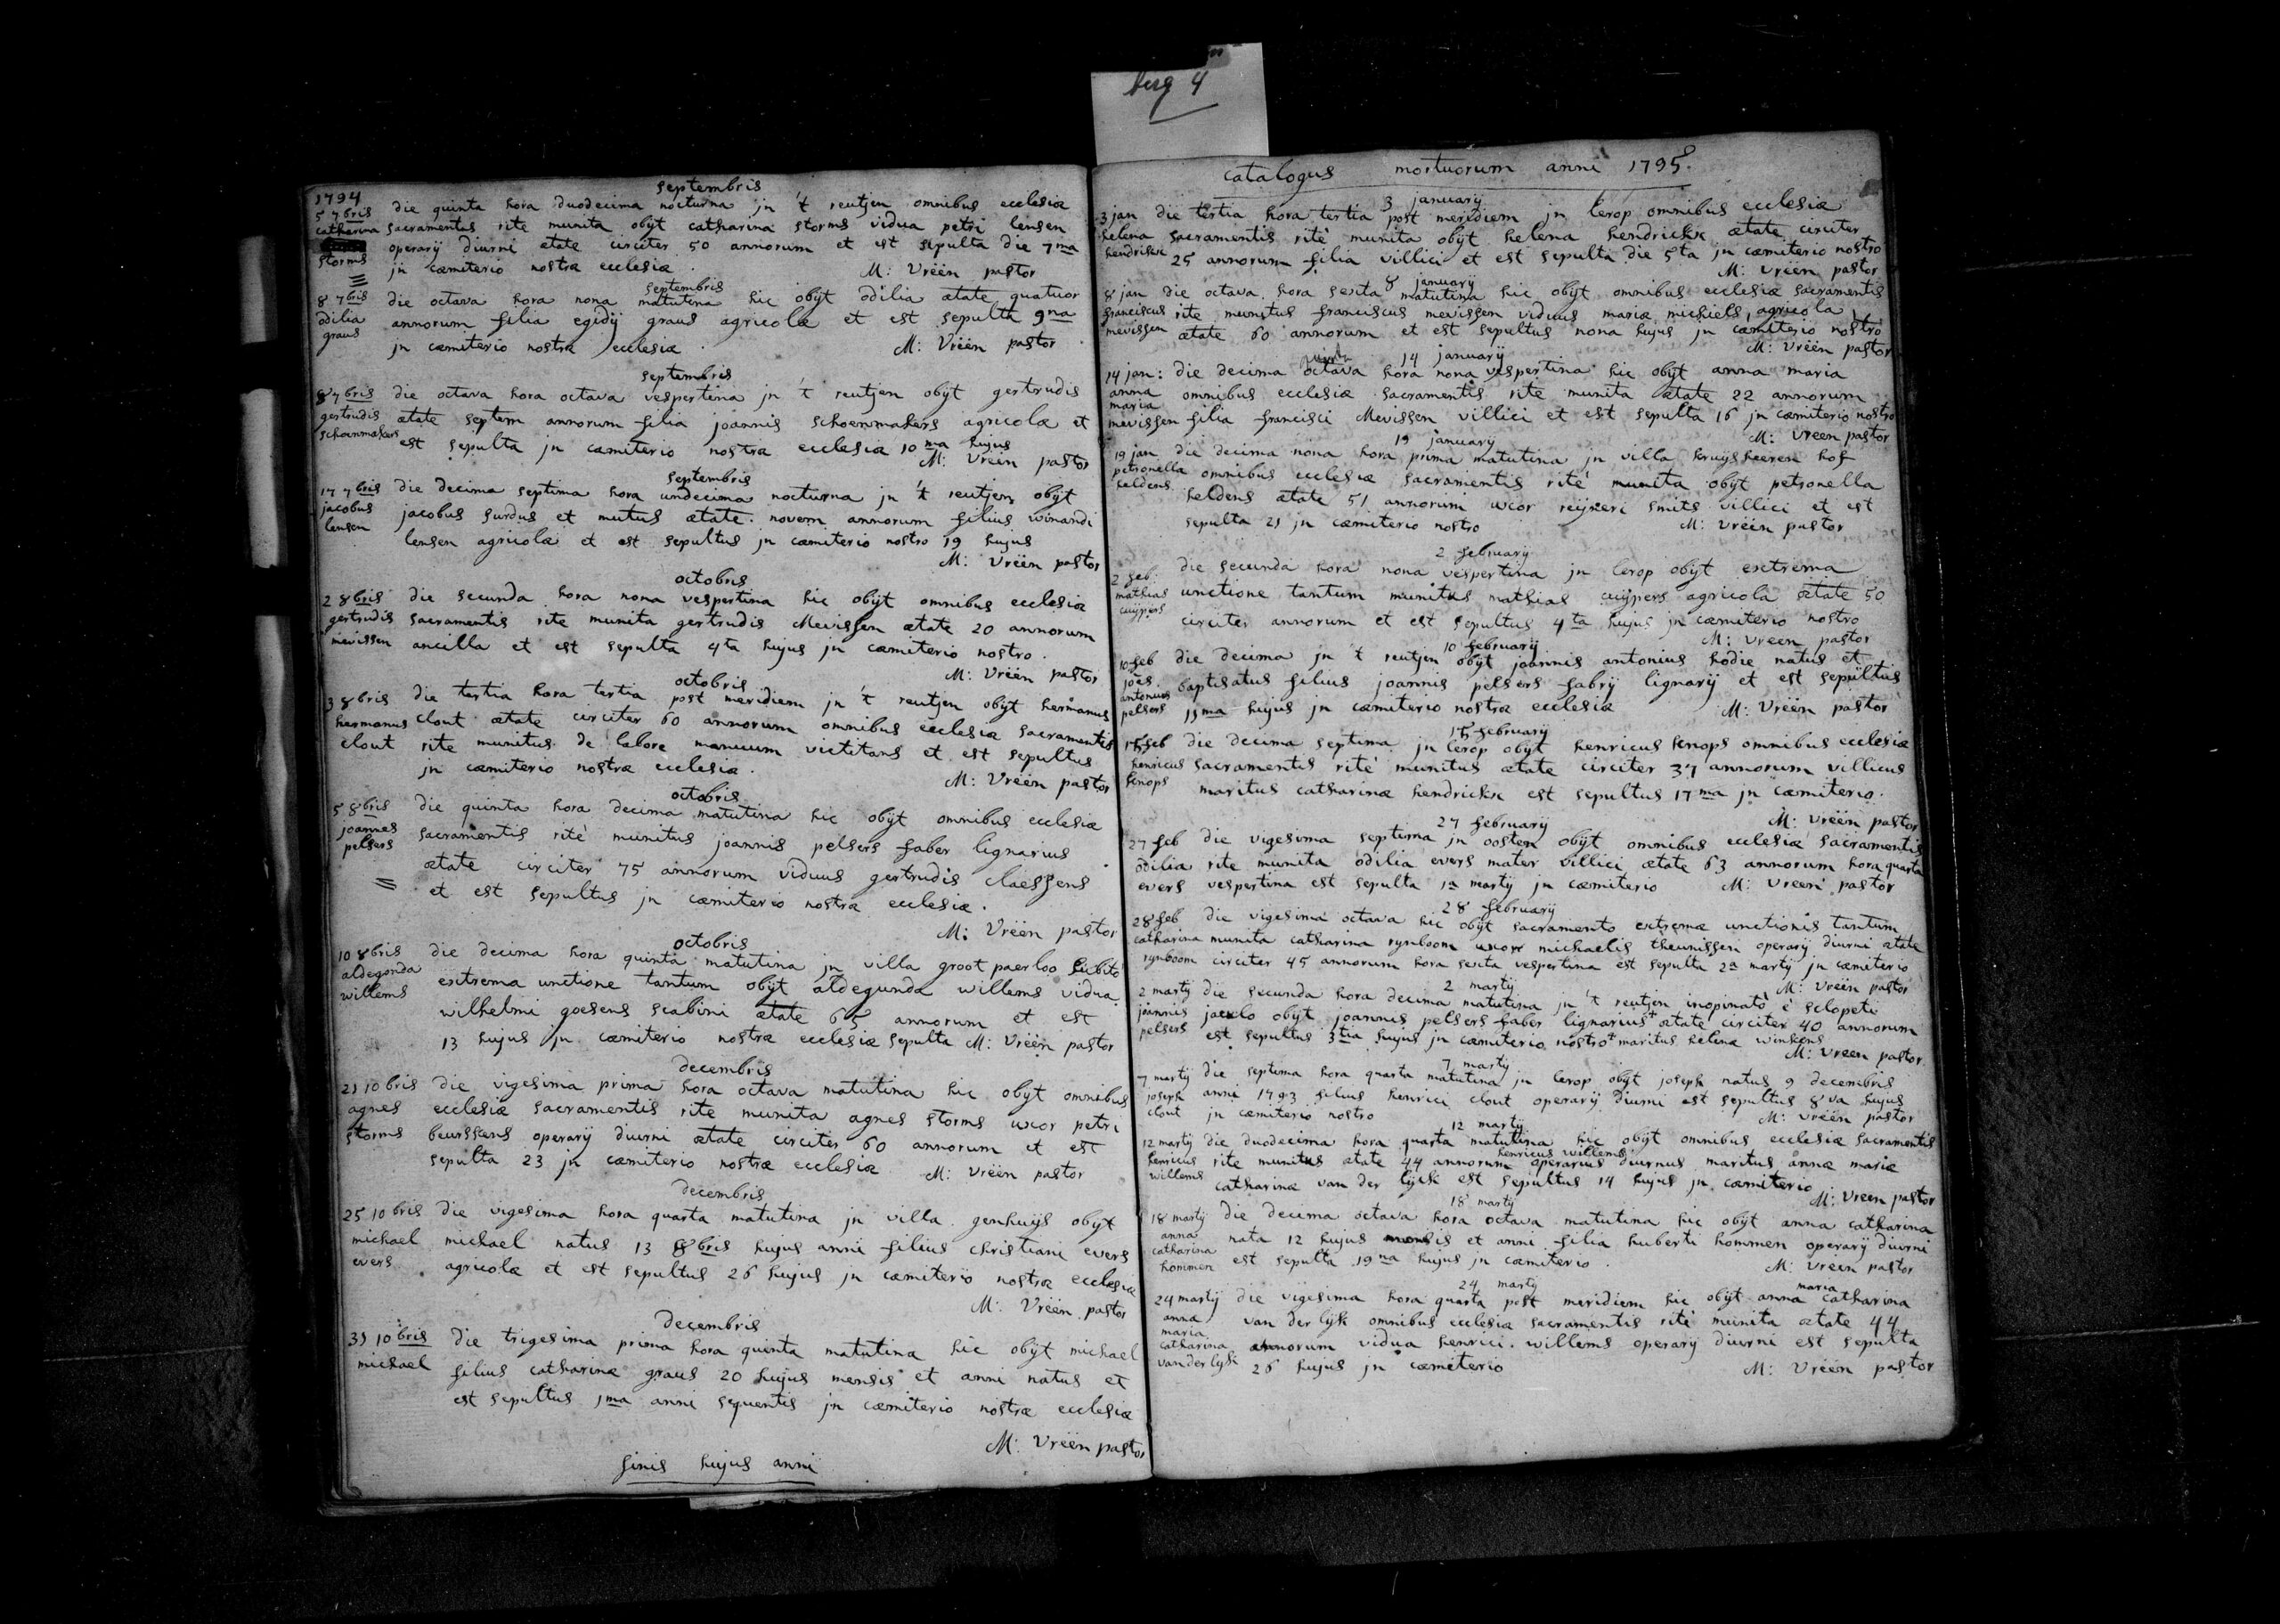 berg 4
1794
septembris
5 7bris die quinta hora duodecima nocturna jn 't reutjen omnibus ecclesiæ
catharina sacramentis rite munita obijt catharina storms vidua petri lensen
storms operarij diurni ætate circiter 50 annorum et est sepulta die 7ma
jn cæmiterio nostræ ecclesiæ. M: Vrëën pastor
septembris
8 7bris die octava hora nona matutina hic obijt odilia ætate quatuor
odilia annorum filia egidij graus agricolæ et est sepulta 9na
graus jn cæmiterio nostræ ecclesiæ. M: Vrëën pastor
septembris
8 7bris die octava hora octava vespertina jn 't reutjen obijt gertrudis
gertrudis ætate septem annorum filia joannis schoenmakers agricolæ et
schoenmakers est sepulta jn cæmiterio nostræ ecclesiæ 10ma hujus
M: Vrëën pastor
septembris
17 7bris die decima septima hora undecima nocturna jn 't reutjen obijt
jacobus jacobus surdus et mutus ætate novem annorum filius winandi
lensen lensen agricolæ et est sepultus jn cæmiterio nostro 19 hujus
M: Vrëën pastor
octobris
2 8bris die secunda hora nona vespertina hic obijt omnibus ecclesiæ
gertrudis sacramentis rite munita gertrudis Mevissen ætate 20 annorum
mevissen ancilla et est sepulta 4ta hujus jn cæmiterio nostro.
M: Vrëën pastor
octobris
3 8bris die tertia hora tertia post meridiem jn 't reutjen obijt hermanus
hermanus clout ætate circiter 60 annorum omnibus ecclesiæ sacramentis
clout rite munitus de labore manuum victitans et est sepultus
jn cæmiterio nostræ ecclesiæ.
M: Vrëën pastor
octobris
5 8bris die quinta hora decima matutina hic obijt omnibus ecclesiæ
joannes sacramentis rité munitus joannis pelsers faber lignarius
pelsers ætate circiter 75 annorum viduus gertrudis claessens
et est sepultus jn cæmiterio nostræ ecclesiæ.
M: Vrëën pastor
octobris
10 8bris die decima hora quinta matutina jn villa groot paerloo subito
aldegonda extrema unctione tantum obijt aldegunda willems vidua
willems wilhelmi goesens scabini ætate 65 annorum et est
13 hujus jn cæmiterio nostræ ecclesiæ sepulta M: Vrëën pastor
decembris
21 10bris die vigesima prima hora octava matutina hic obijt omnibus
agnes ecclesiæ sacramentis rite munita agnes storms uxor petri
storms beurssens operarij diurni ætate circiter 60 annorum et est
sepulta 23 jn cæmiterio nostræ ecclesiæ M: Vrëën pastor
decembris
25 10bris die vigesima hora quarta matutina jn villa genhuijs obijt
michael michael natus 13 8bris hujus anni filius christiani evers
evers agricolæ et est sepultus 26 hujus jn cæmiterio nostræ ecclesiæ
M: Vrëën pastor
decembris
31 10bris die trigesima prima hora quinta matutina hic obijt michael
michael filius catharinæ graus 20 hujus mensis et anni natus et
est sepultus 1ma anni sequentis jn cæmiterio nostræ ecclesiæ
M: Vrëën pastor
finis hujus anni
catalogus mortuorum anni 1795.
3 januarij
3 jan die tertia hora tertia post meridiem jn lerop omnibus ecclesiæ
helena sacramentis rité munita obijt helena hendrickx ætate circiter
hendrikx 25 annorum filia villici et est sepulta die 5ta jn cæmiterio nostro
M: Vrëën pastor
8 januarij
8 jan die octava hora sexta matutina hic obijt omnibus ecclesiæ sacramentis
franciscus rite munitus franciscus mevissen viduus mariæ michiels, agricola
mevissen ætate 60 annorum et est sepultus nona hujus jn cæmiterio nostro
M: Vrëën pastor
14 januarij
14 jan: die decima octava hora nona vespertina hic obijt anna maria
anna omnibus ecclesiæ sacramentis rite munita ætate 22 annorum
maria
mevissen filia francisci Mevissen villici et est sepulta 16 jn cæmiterio nostro
M: Vrëën pastor
19 january
19 jan die decima nona hora prima matutina jn villa kruijsheeren hof
petronella omnibus ecclesiæ sacramentis rité munita obijt petronella
heldens heldens ætate 51 annorum uxor reijneri smits villici et est
sepulta 21 jn cæmiterio nostro M: Vrëën pastor
2 februarij
2 feb: die secunda hora nona vespertina jn lerop obijt extrema
mathias unctione tantum munitus mathias cuijpers agricola ætate 50
cuijpers circiter annorum et est sepultus 4ta hujus jn cæmiterio nostro
M: Vrëën pastor
10 februarij
10 feb die decima jn 't reutjen obijt joannis antonius hodie natus et
joës baptisatus filius joannis pelsers fabrij lignarij et est sepultus
antonius
pelsers 11ma hujus jn cæmiterio nostræ ecclesiæ M: Vrëën pastor
15 februarij
15 feb die decima septima jn lerop obijt henricus knops omnibus ecclesiæ
henricus sacramentis rité munitus ætate circiter 37 annorum villicus
knops maritus catharinæ hendrickx est sepultus 17ma jn cæmiterio.
M: Vrëën pastor
27 februarij
27 feb die vigesima septima jn oosten obijt omnibus ecclesiæ sacramentis
odilia rite munita odilia evers mater villici ætate 63 annorum hora quarta
evers vespertina est sepulta 1a martij jn cæmiterio M: Vrëën pastor
28 februarij
28 feb die vigesima octava hic obijt sacramento extremæ unctionis tantum
catharina munita catharina rynboom uxor michaelis theunissen operarij diurni ætate
rynboom circiter 45 annorum hora sexta vespertina est sepulta 2a martij jn cæmiterio
M: Vrëën pastor
2 martij
2 martij die secunda hora decima matutina jn 't reutjen inopinatò è sclopeti
joannis jaculo obijt joannis pelsers faber lignarius+ ætate circiter 40 annorum
pelsers est sepultus 3tia hujus jn cæmiterio nostro +maritus helenæ winkens
M: Vrëën pastor
7 martij
7 martij die septima hora quarta matutina jn lerop obijt joseph natus 9 decembris
joseph anni 1793 filius henrici clout operarij diurni est sepultus 8va hujus
clout jn cæmiterio nostro M: Vrëën pastor
12 martij
12 martij die duodecima hora quarta matutina hic obijt omnibus ecclesiæ sacramentis
henricus willems
henricus rite munitus ætate 44 annorum operarius diurnus maritus annæ mariæ
willems catharinæ van der lijck est sepultus 14 hujus jn cæmiterio
M: Vrëën pastor
18 martij
18 martij die decima octava hora octava matutina hic obijt anna catharina
anna nata 12 hujus mensis et anni filia huberti hommen operarij diurni
catharina
hommen est sepulta 19na hujus jn cæmiterio.
M: Vrëën pastor
24 martij
maria
24 martij die vigesima hora quarta post meridiem hic obijt anna catharina
anna van der lijk omnibus ecclesiæ sacramentis rité munita ætate 44
maria
catharina annorum vidua henrici willems operarij diurni est sepulta
van der lyk 26 hujus jn cæmiterio M: Vrëën pastor